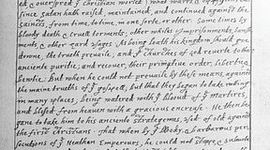 ed & overspred y^e christian world) what warrs & oppos
since satan hath raised, maintained, and continued against the
saincts, from time, to time, in one sorte, or other. Some times by
bloody death & cruell torments; other whiles imprisonments, banish-
ments & other hard usages. As being loath his kingdom should goe
downe, the trueth prevaile, and y^e churches of god reverte to their
anciente puritie, and recover, their primative order, libertie
& bewtie. But when he could not prevaile by these means, against
the maine trueths of y^e gospell, but that they began to take rootting
in many places, being watered with y^e blood of y^e martires,
and blessed from heaven with a gracious encrease. He then be-
gane to take him to his anciente strategemes, used of old against
the first christians. That when by y^e bloody & barbarous per-
secutions of y^e Heathen Emperours, he could not stoppe & subverte